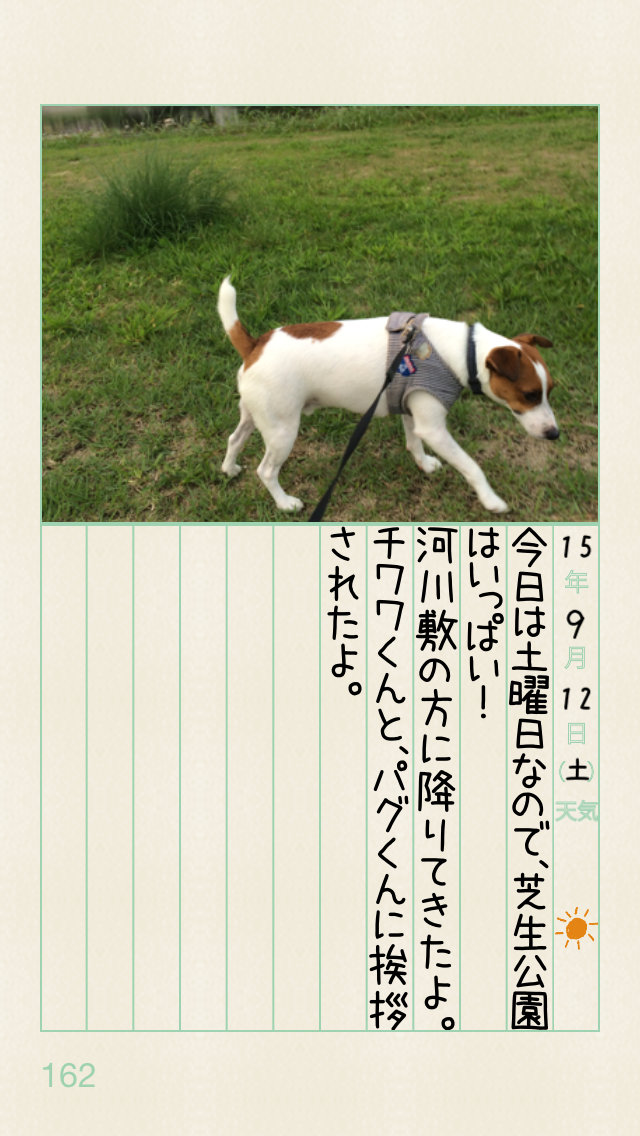 15年9月12日(土)天気
今日は土曜日なので、芝生公園
はいっぱい!
河川敷の方に降りてきたよ。
チワワくんと、パグくんに挨拶
されたよ。
162